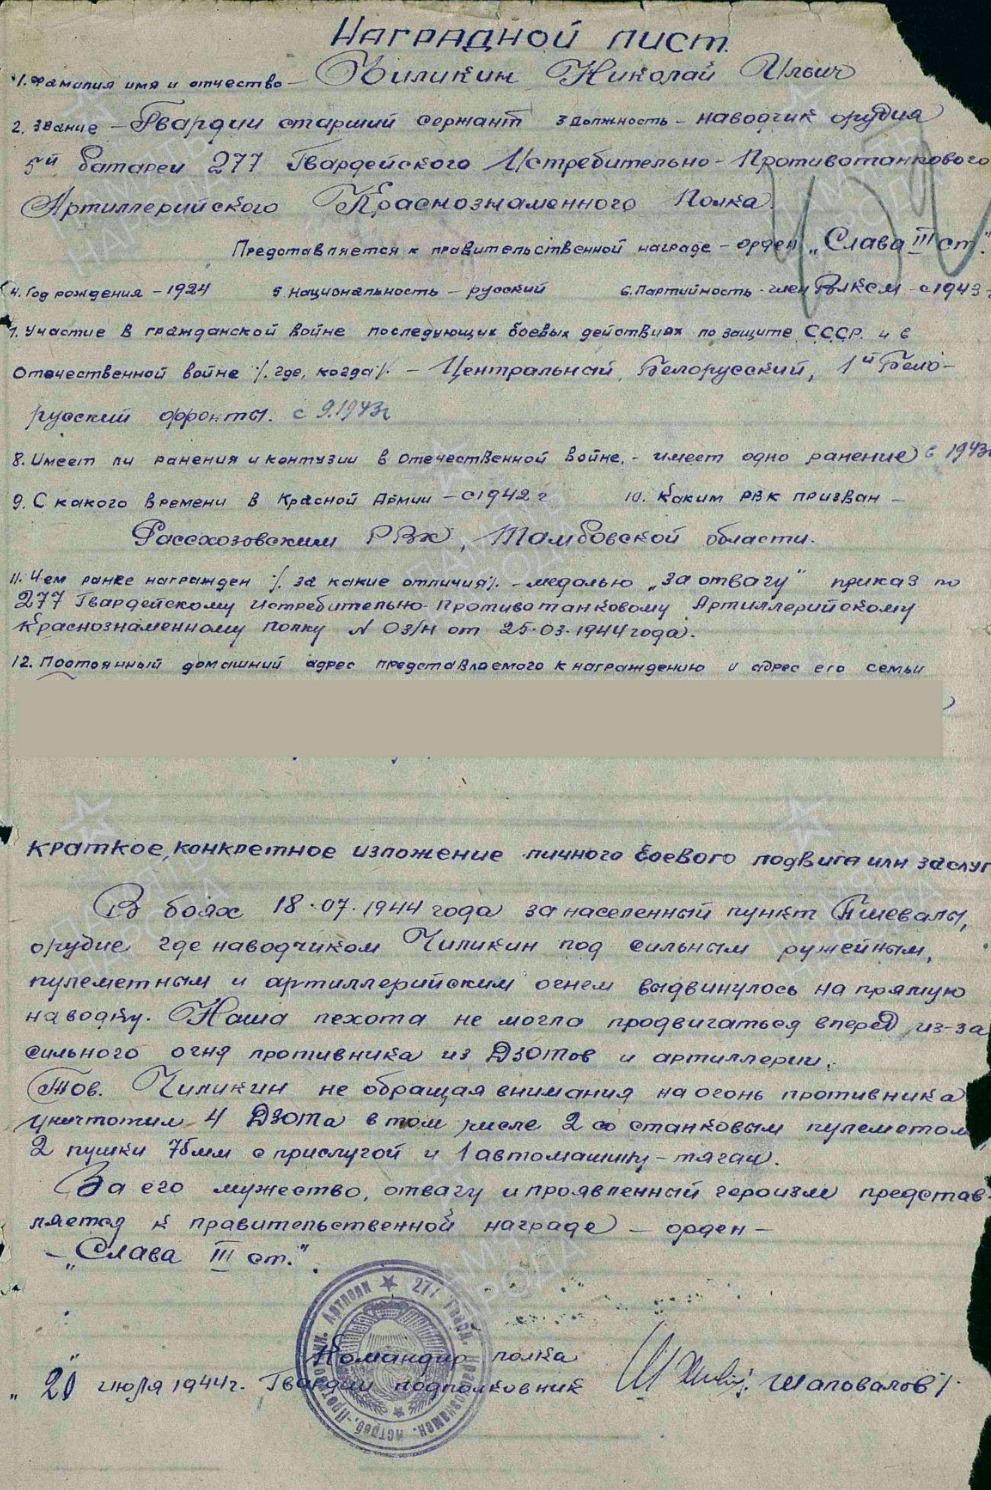 НАГРАДНОЙ ЛИСТ
1. Фамилия имя и отчество – Чиликин Николай Ильич
2. Звание – Гвардии старший сержант 3 Должность – наводчик орудия
5й батареи 277 Гвардейского Истребительно-Противотанкового
Артиллерийского Краснознаменного Полка.
Представляется к правительственной награде – орден „Слава III ст."
4. Год рождения – 1924 5. Национальность – русский 6. Партийность – член ВЛКСМ – с 1943 г
7. Участие в гражданской войне последующих боевых действиях по защите СССР и в
Отечественной войне /. где, когда/. – Центральный, Белорусский, 1й Бело-
русский фронты. с 9.1943г
8. Имеет ли ранения и контузии в Отечественной войне. – имеет одно ранение с 1943г
9. С какого времени в Красной Армии – с 1942 г 10. Каким РВК призван –
Рассказовским РВК, Тамбовской области.
11. Чем ранее награжден /. за какие отличия/. – медалью „за отвагу" приказ по
277 Гвардейскому истребительно-противотанковому Артиллерийскому
Краснознаменному полку N 03/н от 25.03.1944 года).
12. Постоянный домашний адрес представляемого к награждению и адрес его семьи
Краткое, конкретное изложение личного боевого подвига или заслуг
В боях 18.07.1944 года за населенный пункт Пшевалы,
орудие где наводчиком Чиликин под сильным ружейным,
пулеметным и артиллерийским огнем выдвинулось на прямую
наводку. Наша пехота не могла продвигаться вперед из-за
сильного огня противника из ДЗОТов и артиллерии.
Тов. Чиликин не обращая внимания на огонь противника
уничтожил 4 ДЗОТа в том числе 2 со станковым пулеметом
2 пушки 75мм с прислугой и 1 автомашину – тягач.
За его мужество, отвагу и проявленный героизм представ-
ляется к правительственной награде – орден –
– „Слава III ст.".
Командир полка
„20" июля 1944г. Гвардии подполковник /Шаповалов/.